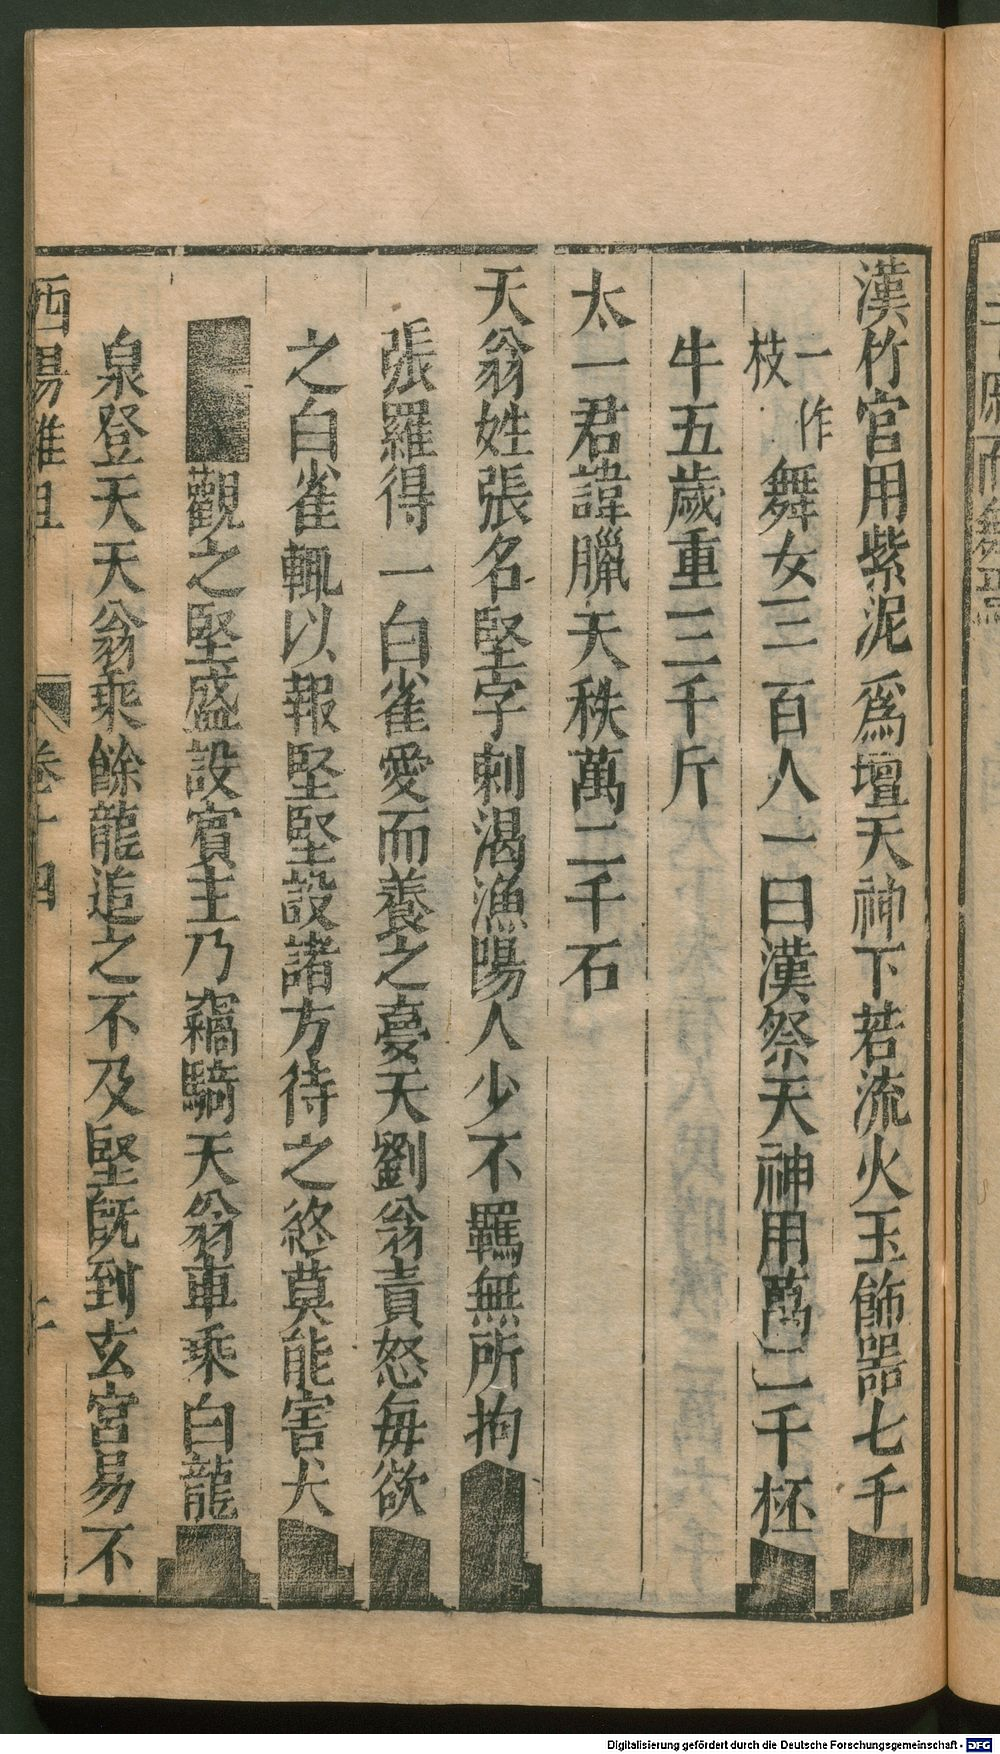 漢竹宮用紫泥爲壇天神下若流火玉飾器七千
一作
枝
舞女三百人一曰漢祭天神用萬二千杯
牛五歲重三千斤
太一君諱臘天秩萬二千石
天翁姓張名堅字刺渴漁陽人少不羈無所拘
張羅得一白雀愛而養之夢天劉翁責怒每欲
之白雀輒以報堅堅設諸方待之終莫能害大
觀之堅盛設賓主乃竊騎天翁車乘白龍
泉登天天翁乘餘龍追之不及堅旣到玄宮易不
酉陽雜俎 卷十四
Digitalisierung gefördert durch die Deutsche Forschungsgemeinschaft - DFG